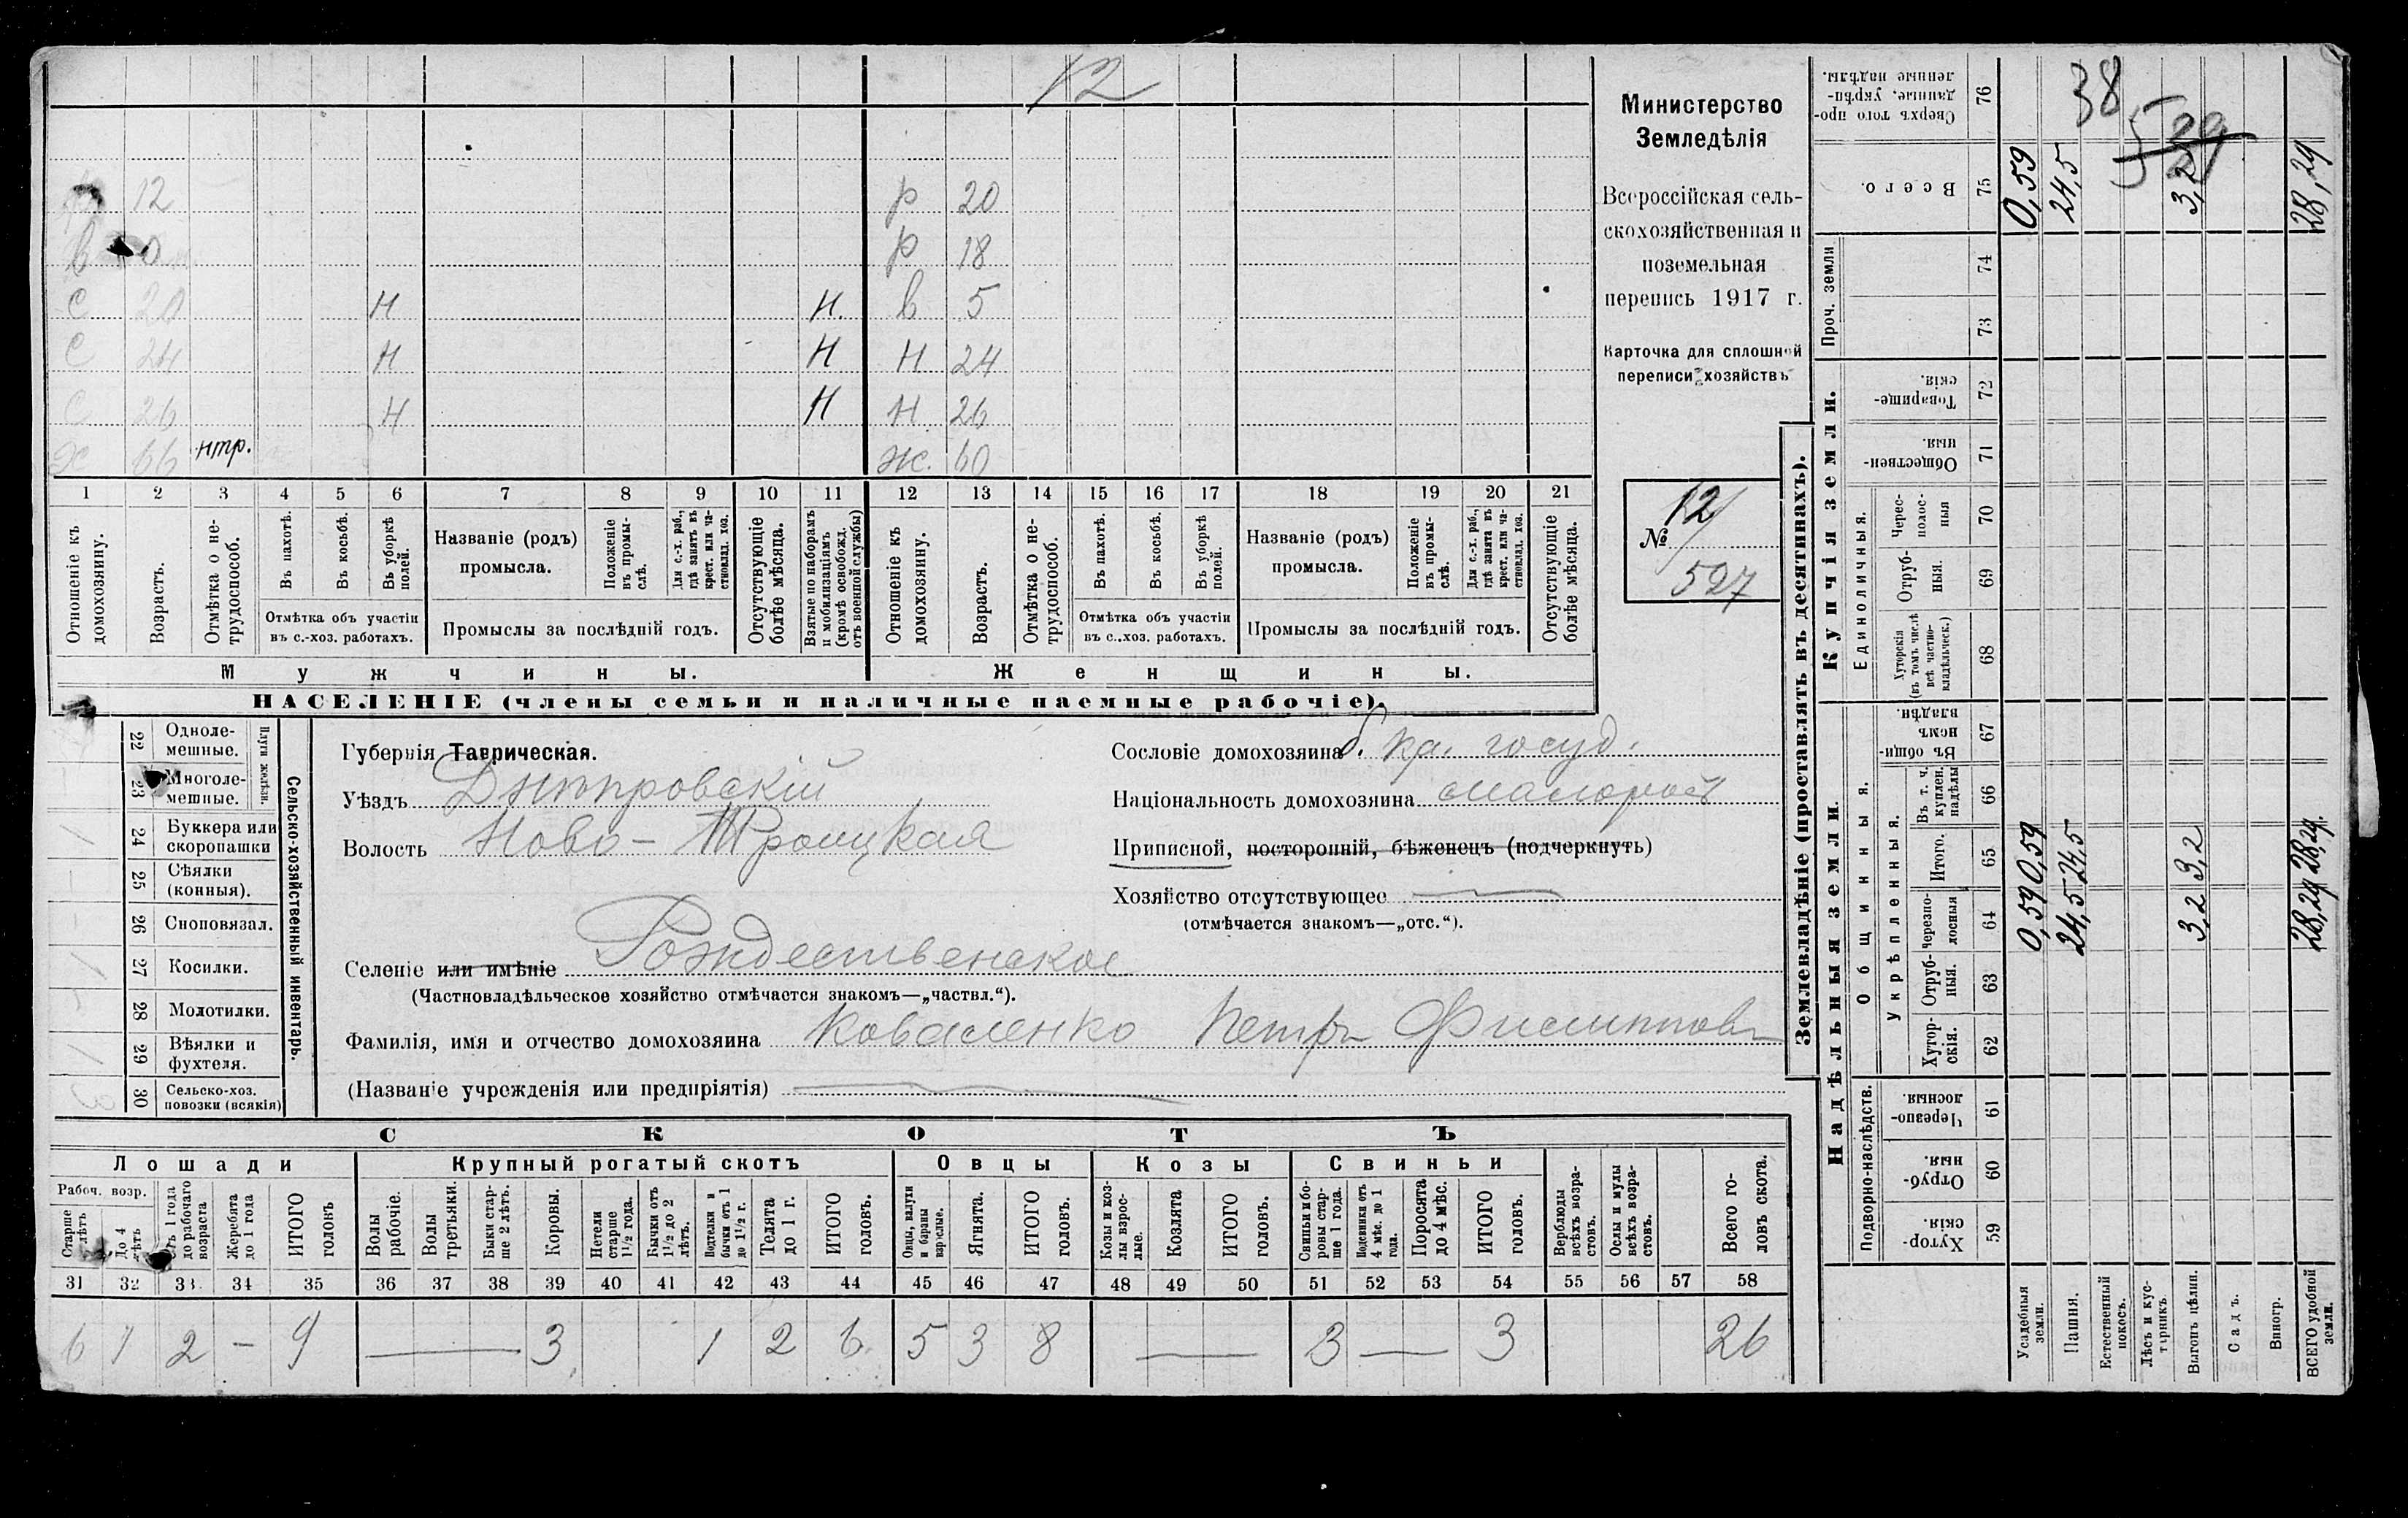 12
12 р 20
в р 18
с 20 н н. в 5
с 24 н н н 24
с 26 н н н 26
х 66 нтр. ж. 60
1 2 3 4 5 6 7 8 9 10 11 12 13 14 15 16 17 18 19 20 21
Отношеніе къ домохозяину.
Возрастъ.
Отмѣтка о не-трудоспособ.
Въ пахотѣ.
Въ косьбѣ.
Въ уборкѣ полей.
Отмѣтка объ участіи
въ с.-хоз. работахъ.
Названіе (родъ)
промысла.
Положеніе въ промы-слѣ.
Для с.-х. раб., гдѣ занятъ въ крест. или ча-стновлад. хоз.
Промыслы за послѣдній годъ.
Отсутствующіе болѣе мѣсяца.
Взятые по наборамъ и мобилизаціямъ (кромѣ освобожд. отъ военной службы)
Отношеніе къ домохозяину.
Возрастъ.
Отмѣтка о не-трудоспособ.
Въ пахотѣ.
Въ косьбѣ.
Въ уборкѣ полей.
Отмѣтка объ участіи
въ с.-хоз. работахъ.
Названіе (родъ)
промысла.
Положеніе въ промы-слѣ.
Для с.-х. раб., гдѣ занята въ крест. или ча-стновлад. хоз.
Промыслы за послѣдній годъ.
Отсутствующіе болѣе мѣсяца.
Мужчины. Женщины.
НАСЕЛЕНІЕ (члены семьи и наличные наемные рабочіе).
Министерство
Земледѣлія
Всероссійская сель-
скохозяйственная и
поземельная
перепись 1917 г.
Карточка для сплошной
переписи хозяйствъ
№ 12
527
Сельско-хозяйственный инвентарь.
Плуги желѣзн.
22 Одноле-
мешные.
23 Многоле-
мешные.
24 Буккера или
скоропашки
25 Сѣялки
(конныя).
26 Сноповязал.
27 Косилки.
28 Молотилки.
29 Вѣялки и
фухтеля.
30 Сельско-хоз.
повозки (всякія)
Губернія Таврическая.
Уѣздъ Днѣпровскій
Волость Ново-Троицкая
Селеніе или имѣніе Рождественское
(Частновладѣльческое хозяйство отмѣчается знакомъ—„частвл.“).
Фамилія, имя и отчество домохозяина Коваленко Петръ Филиппов
(Названіе учрежденія или предпріятія)
Сословіе домохозяина б. кр. госуд.
Національность домохозяина малоросъ
Приписной, посторонній, бѣженецъ (подчеркнуть)
Хозяйство отсутствующее
(отмѣчается знакомъ—„отс.“).
СКОТЪ
Лошади Крупный рогатый скотъ Овцы Козы Свиньи
Рабоч. возр.
Старше 4 лѣтъ
До 4 лѣтъ
Отъ 1 года до рабочаго возраста
Жеребята до 1 года
ИТОГО головъ
Волы рабочіе.
Волы третьяки.
Быки стар-ше 2 лѣтъ.
Коровы.
Нетели старше 1½ года.
Бычки отъ 1½ до 2 лѣтъ.
Подтелки и бычки отъ 1 до 1½ г.
Телята до 1 г.
ИТОГО головъ.
Овцы, валухи и бараны взрослые.
Ягнята.
ИТОГО головъ.
Козы и коз-лы взрос-лые.
Козлята
ИТОГО головъ.
Свиньи и бо-ровы стар-ше 1 года.
Подсвинки отъ 4 мѣс. до 1 года.
Поросята до 4 мѣс.
ИТОГО головъ.
Верблюды всѣхъ возра-стовъ.
Ослы и мулы всѣхъ возра-стовъ.
Всего го-ловъ скота.
31 32 33 34 35 36 37 38 39 40 41 42 43 44 45 46 47 48 49 50 51 52 53 54 55 56 57 58
6 1 2 — 9 — 3 1 2 6 5 3 8 — 3 — 3 26
Землевладѣніе (проставлять въ десятинахъ).
Надѣльныя земли. Купчія земли. Проч. земли
Подворно-наслѣдств. Общинныя. Единоличныя.
Укрѣпленныя.
Хутор-скія. 59
Отруб-ныя. 60
Черезпо-лосныя. 61
Хутор-скія. 62
Отруб-ныя. 63
Черезпо-лосныя 64
Итого. 65
Въ т. ч. куплен. надѣлы 66
Въ общин-номъ владѣн. 67
Хуторскія (въ томъ числѣ всѣ частно-владѣльческ.) 68
Отруб-ныя. 69
Черес-полос-ныя 70
Обществен-ныя. 71
Товарище-скія. 72
73
74
Всего. 75
Сверхъ того про-данные, укрѣп-ленные надѣлы. 76
Усадебныя земли. 0,59 0,59 0,59
Пашня. 24,5 24,5 24,5
Естественный покосъ.
Лѣсъ и кус-тарникъ.
Выгонъ цѣлин. 3,2 3,2 3,2
Садъ.
Виногр.
ВСЕГО удобной земли. 28,29 28,29 28,29
38
529